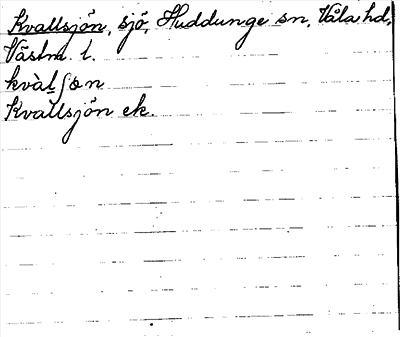 Kvallsjön, sjö, Huddunge sn, Våla hd,
Västm. l.
kvàlʃøn
Kvallsjön ek.